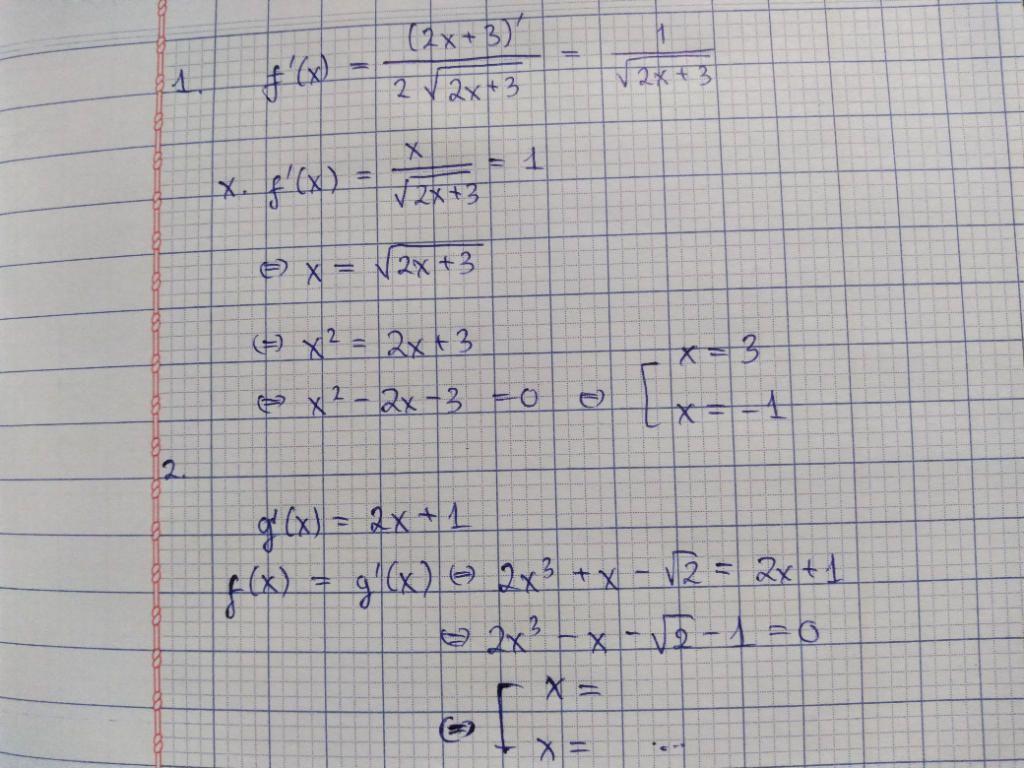 1. f'(x) = (2x+3)' / 2√(2x+3) = 1 / √(2x+3)
x. f'(x) = x / √(2x+3) = 1
⇔ x = √(2x+3)
⇔ x² = 2x+3
⇔ x² - 2x - 3 = 0 ⇔ [ x = 3
x = -1
2.
g'(x) = 2x+1
f(x) = g'(x) ⇔ 2x³ + x - √2 = 2x+1
⇔ 2x³ - x - √2 - 1 = 0
⇔ [ x =
x = ...